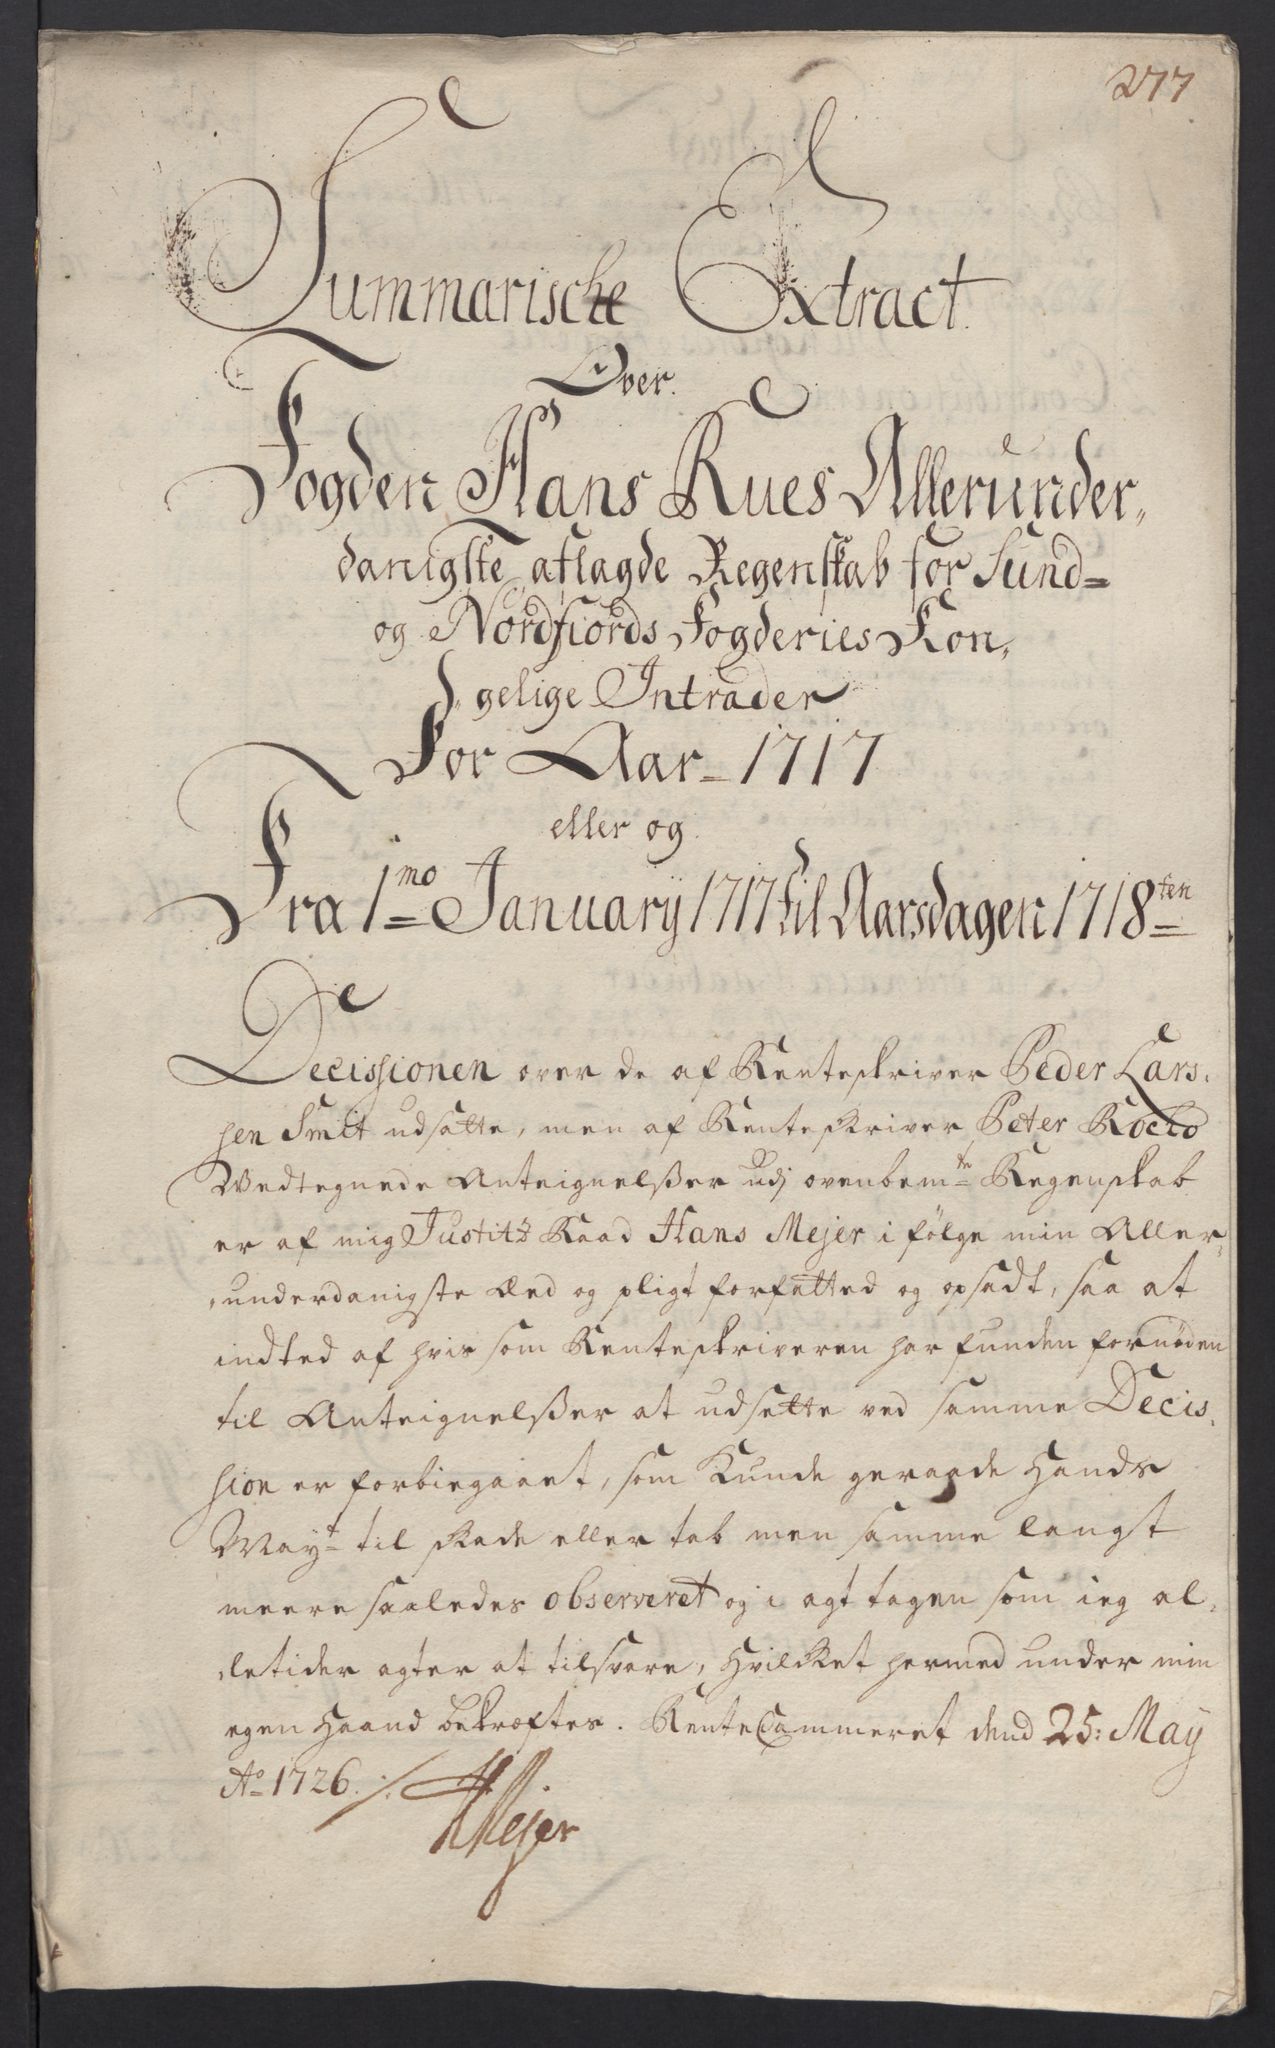 277
Summarische Extract.
Over.
Fogden Hans Rues Allerunder„
danigste aflagde Regenskab for Sund=
og Nordfiords Fogderies Kon„
„gelige Intrader
For Aar 1717
eller og
Fra 1mo January 1717 til Aarsdagen 1718ten
Decissionen over de af Renteskriver Peder Lars„
sen Smit udsatte, men af Renteskriver Peter
Vedtegnede Anteignelßer udj ovenbemte Regenskab
er af mig Justitz Raad Hans Mejer i følge min Aller„
„underdanigste Æd og pligt forfatted og opsadt, saa at
indted af hvis som Renteskriveren har funden fornøden
til Anteignelßer at udsette ved samme Decis„
sion er forbiegaaet, som kunde geraade Hands
Mayt til skade eller tab men samme langt
meere saaledes observeret og i agt tagen som ieg al„
„letider agter at tilsvare, Hvilcket hermed under min
egen Haand bekræftes. RenteCammeret dend 25: May
Ao 1726 ./.
HMejer